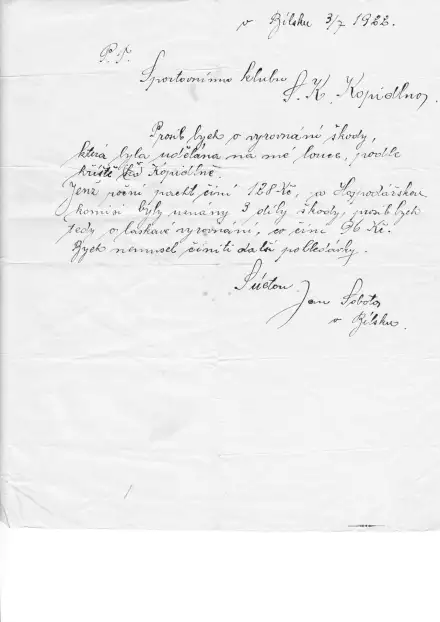 v Bílsku 3/7 1922.
P. T.
Sportovnímu klubu
S. K. Kopidlno.
Prosil bych o vyrovnání škody,
která byla udělána na mé louce, podle
hřiště v Kopidlně.
Jenž roční pacht činí 128 Kč, a Hospodářskou
komisí byly uznány 3 díly škody, prosil bych
tedy o laskavé vyrovnání, co činí 96 Kč.
Bych nemusel činiti další pohledávky.
S úctou
Jan Sobota
v Bílsku.